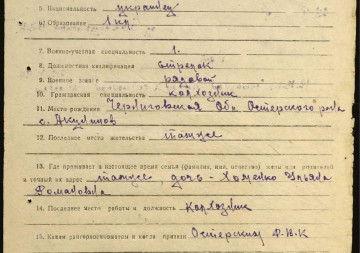 5. Национальность украинец
6) Образование 1 кл
7. Военно-учетная специальность 1.
8. Должностная квалификация стрелок
9. Военное звание рядовой
10. Гражданская специальность колхозник
11. Место рождения Черниговская Обл. Остерского р-на
с.
12. Последнее место жительства тамже
13. Где проживает в настоящее время семья (фамилия, имя, отчество) жены или родителей
и точный их адрес тамже, дочь - Хоменко Ульяна
Романовна
14. Последнее место работы и должность Колхозник
15. Каким райгорвоенкоматом и когда призван Остерским Р.В.К